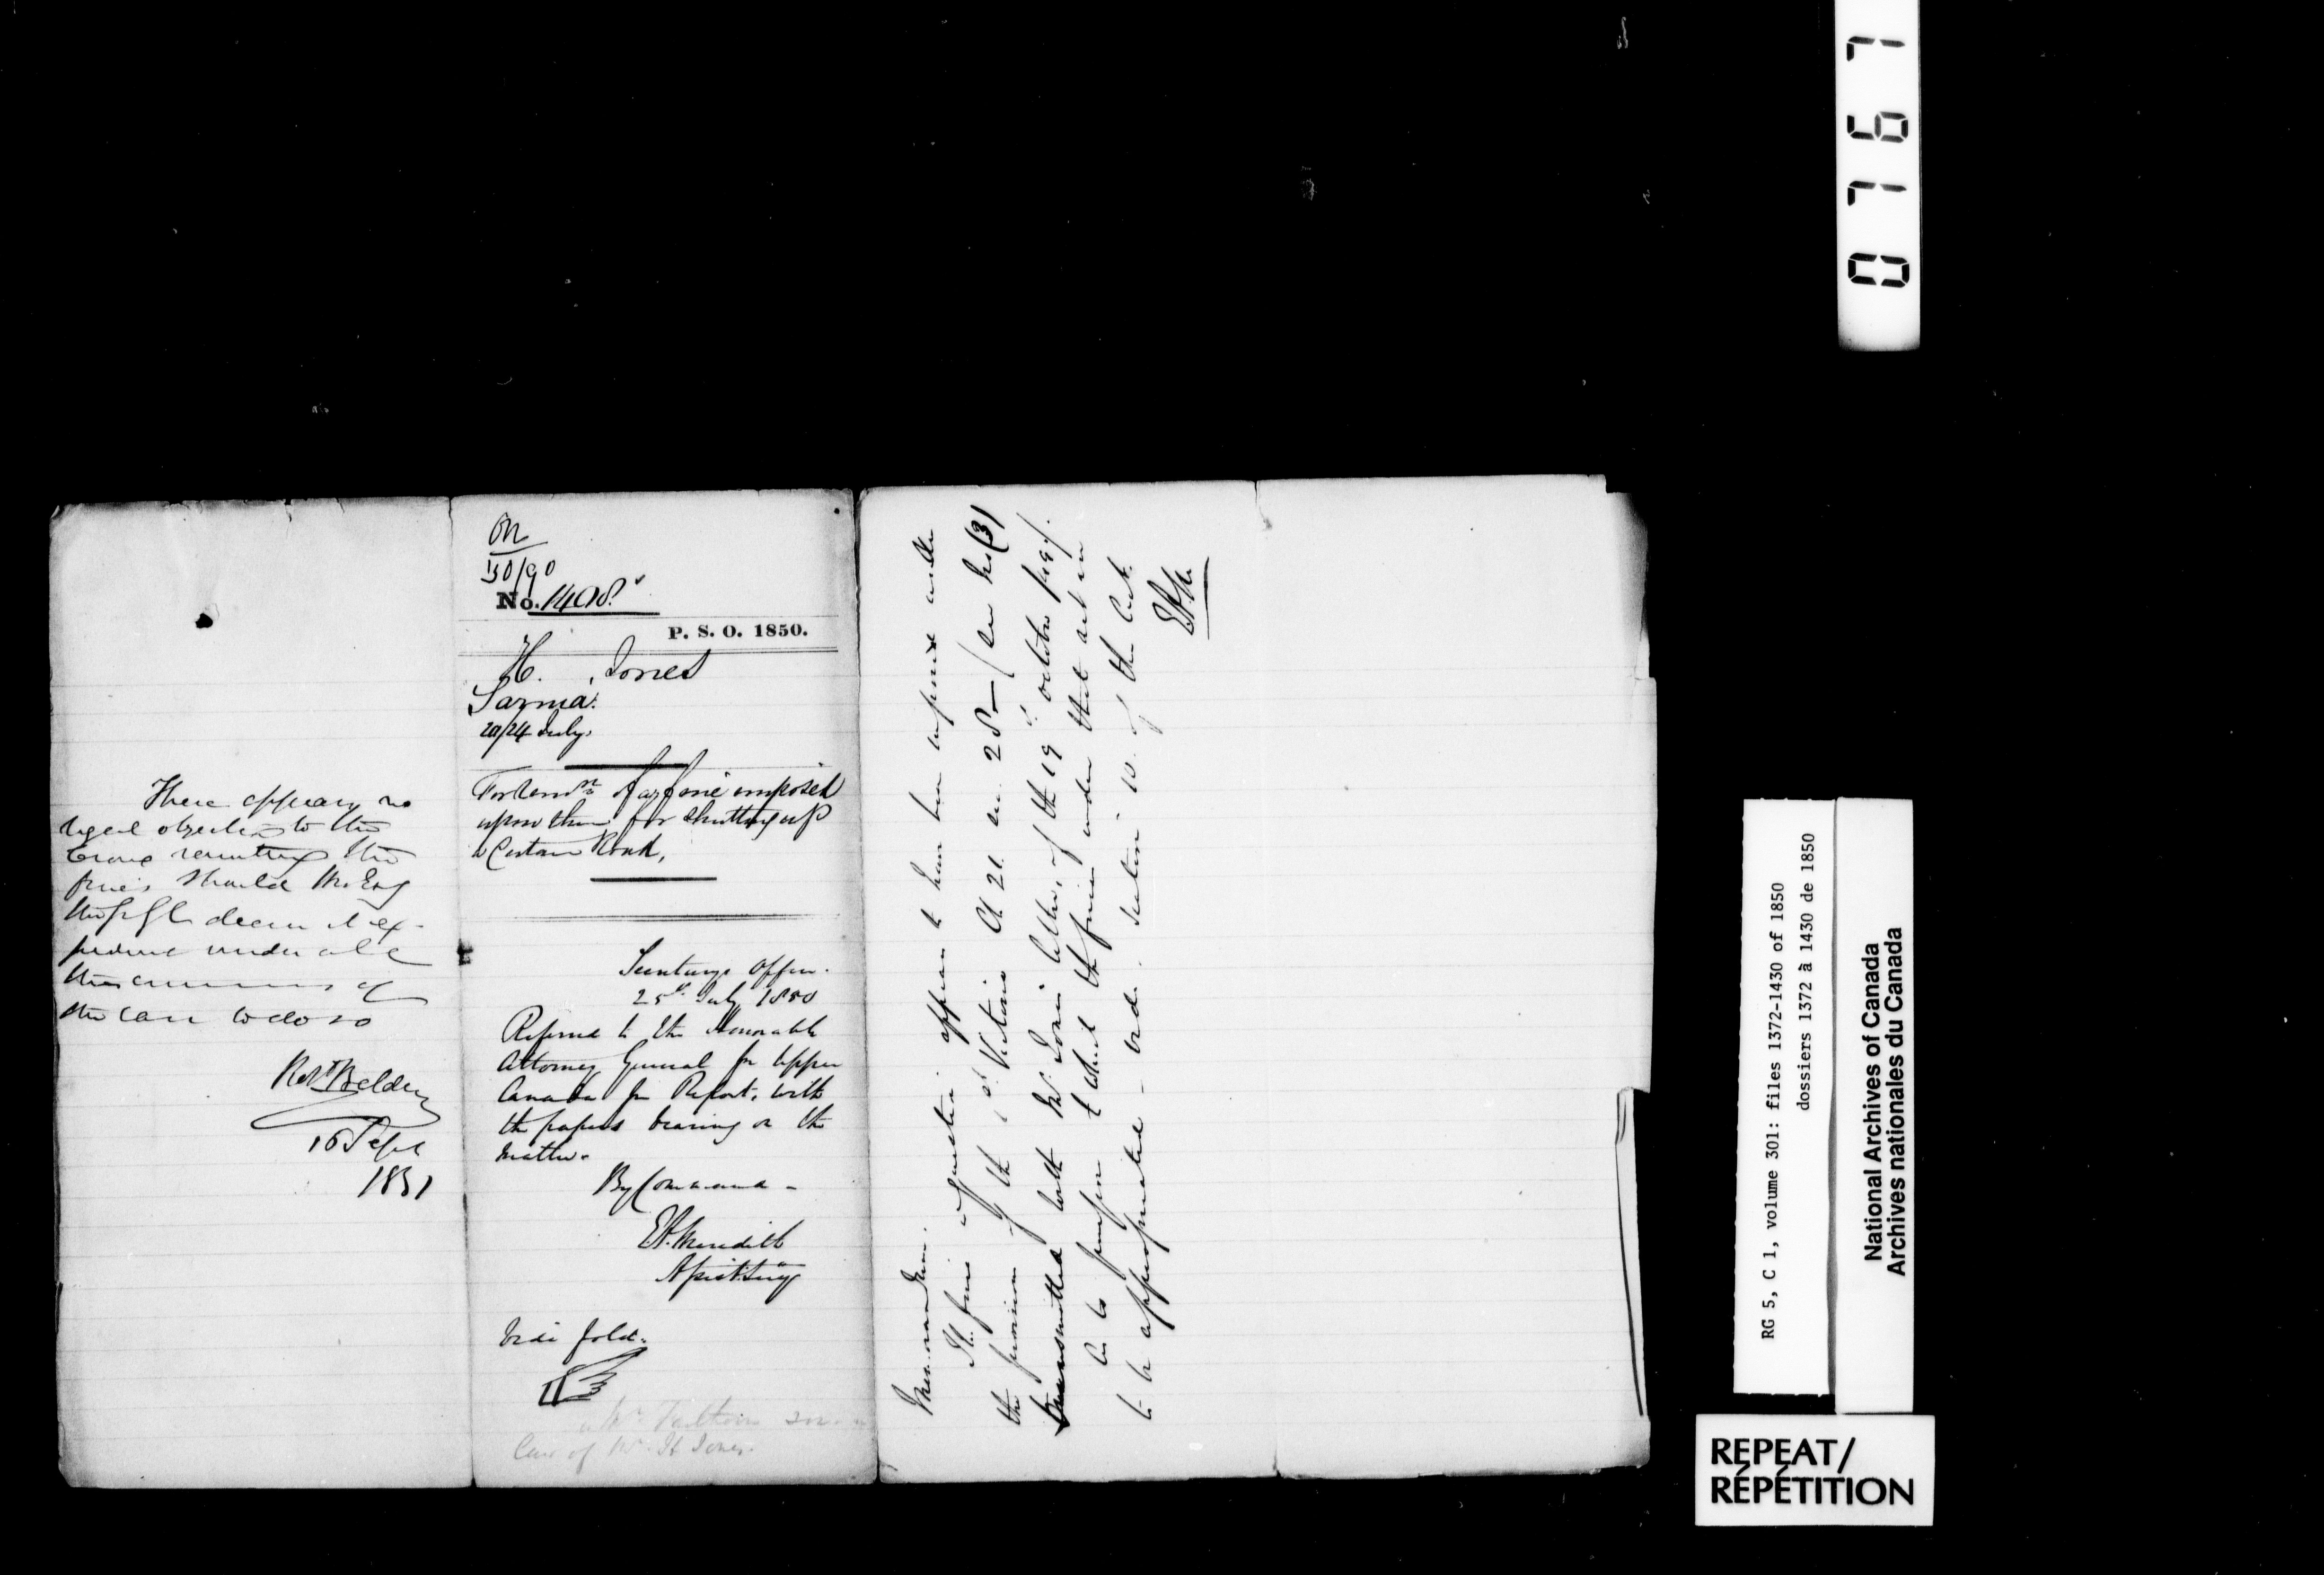 There appears no
legal objection to the
Crown remitting the
fines should His Exy
the deem it ex-
pedient under all
the circumstances of
the case to do so
Robt Baldwin
16 Sept
1851
On
50/90
No. 1408.
P. S. O. 1850.
H. Jones
Sarnia.
20/24 July.
For Remn of a fine imposed
upon them for Shutting up
a Certain Road.
Secretary's Office.
25th July 1850
Referred to the Honorable
Attorney General for Upper
Canada for Report, with
the papers bearing on the
matter.
By Command -
E.A. Meredith
Asst Secy
Vide fold.
Mr.
Case of Mr. H Jones.
Memorandum.
The fines in question appear to have been imposed under
the provisions of the 1st Victoria Ch 21. sec. 28 - (see No (3)
transmitted with Mr Jones' letter, of the 19th October 1849).
As to purpose to which the fines under that act are
to be appropriated - vide. Section 10. of the Act.
E.A.M.
0767
RG 5, C 1, volume 301: files 1372-1430 of 1850
dossiers 1372 à 1430 de 1850
National Archives of Canada
Archives nationales du Canada
REPEAT/
RÉPÉTITION